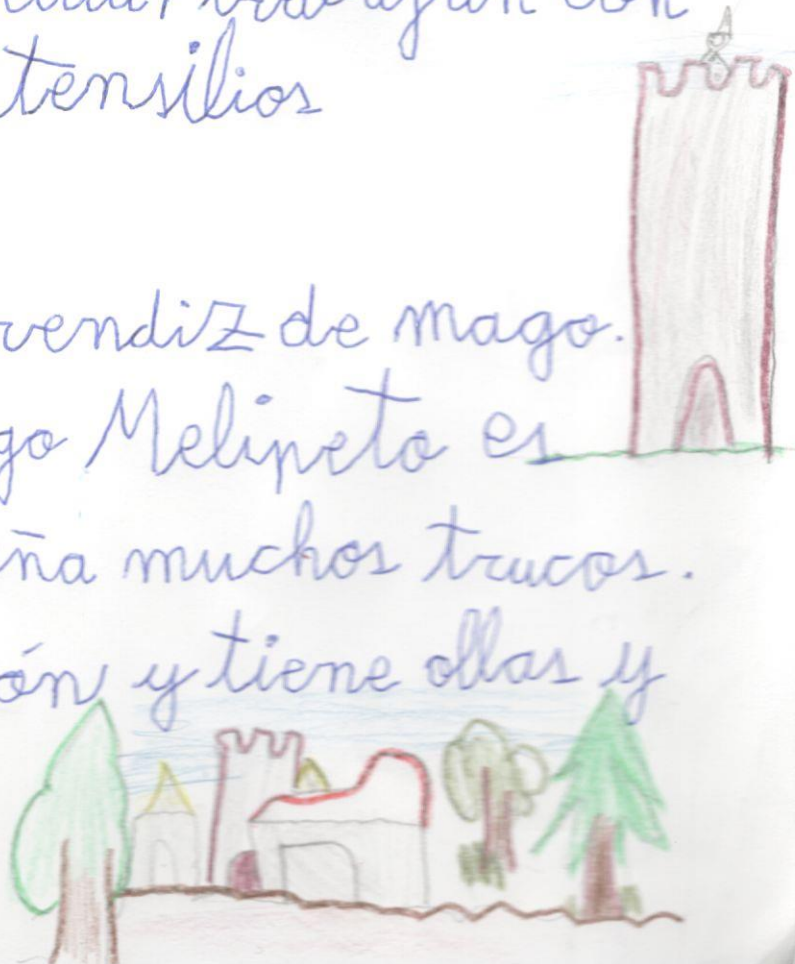 tensilios
rendiz de mago.
go Melipeto es
ña muchos trucos.
ón y tiene ollas y